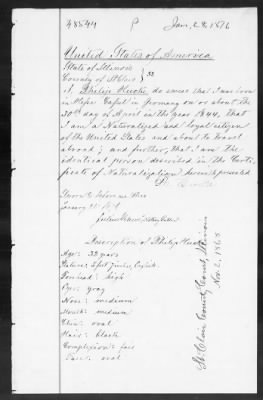 48544 P Jan. 28. 1876
United States of America
State of Illinois
County of St Clair } SS
I, Philip do swear that I was born
in Hesse Cassel in Germany on or about the
30th day of April in the year 1844, that
I am a Naturalized and loyal citizen
of the United States and about to travel
abroad; and further, that I am the
identical person described in the Certi-
ficate of Naturalization herewith presented
Sworn to before me this
January 25
Description of Philip
Age: 32 years
Stature: 5 feet inches, English
Forehead: high
Eyes: gray
Nose: medium
Mouth: medium
Chin: oval
Hair: black
Complexion: fair
Face: oval
St Clair County Court, Illinois
Nov. 2, 1868